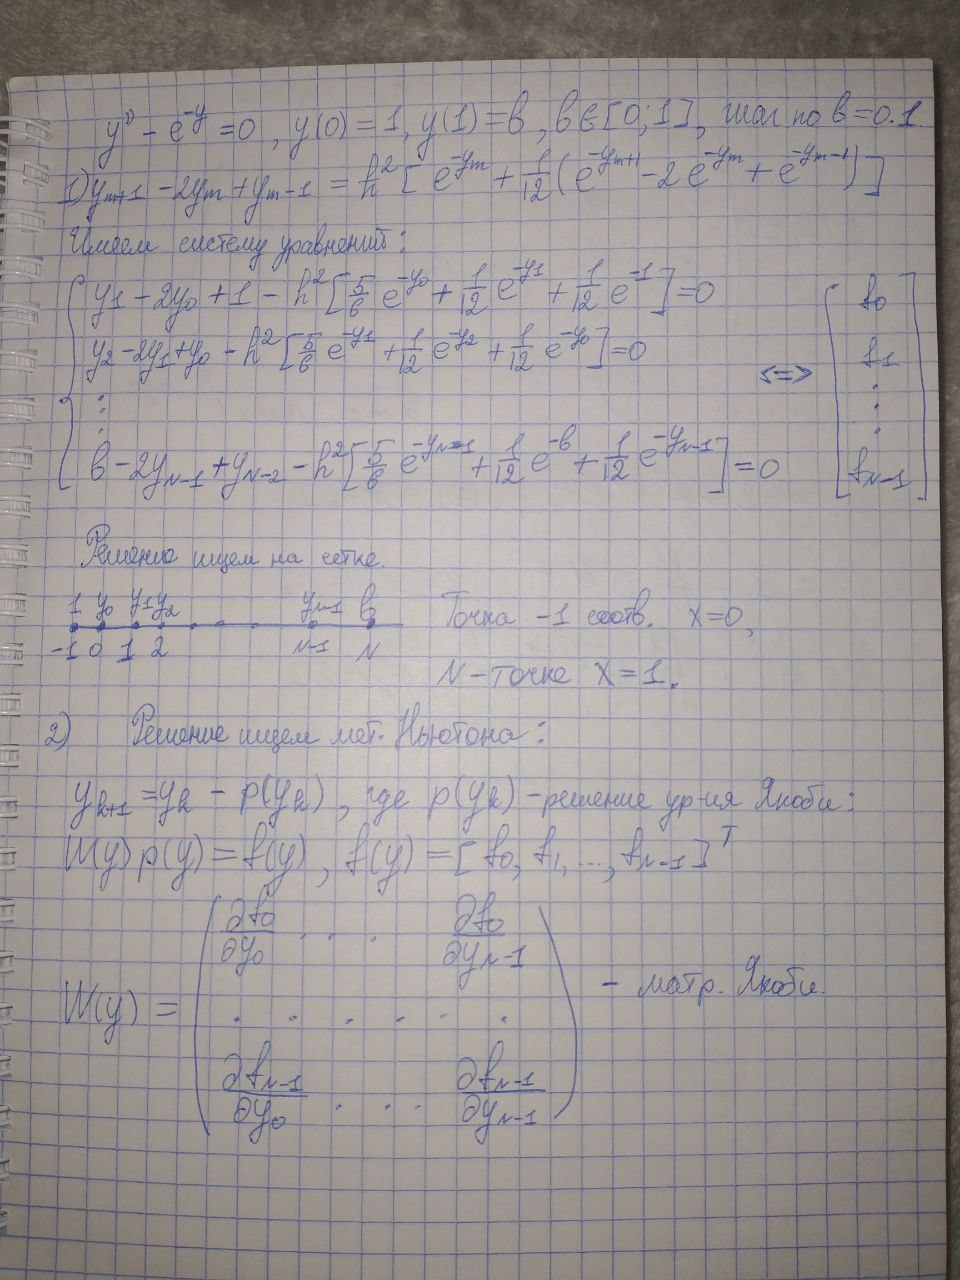 y'' - e^{-y} = 0, y(0) = 1, y(1) = в, в ∈ [0; 1], шаг по в = 0.1
1) y_{m+1} - 2y_m + y_{m-1} = h^2 [e^{-y_m} + 1/12 (e^{-y_{m+1}} - 2e^{-y_m} + e^{-y_{m-1}})]
Имеем систему уравнений:
y_1 - 2y_0 + 1 - h^2 [5/6 e^{-y_0} + 1/12 e^{-y_1} + 1/12 e^{-1}] = 0
y_2 - 2y_1 + y_0 - h^2 [5/6 e^{-y_1} + 1/12 e^{-y_2} + 1/12 e^{-y_0}] = 0
⋮
в - 2y_{N-1} + y_{N-2} - h^2 [5/6 e^{-y_{N-1}} + 1/12 e^{-в} + 1/12 e^{-y_{N-1}}] = 0
<=> [f_0
f_1
⋮
f_{N-1}]
Решение ищем на сетке.
1 y_0 y_1 y_2 y_{N-1} в
-1 0 1 2 N-1 N
Точка -1 соотв. x=0,
N - точке x=1.
2) Решение ищем мет. Ньютона:
y_{k+1} = y_k - p(y_k), где p(y_k) - решение ур-ия Якоби:
W(y) p(y) = f(y), f(y) = [f_0, f_1, ..., f_{N-1}]^T
W(y) = (∂f_0/∂y_0 . . . ∂f_0/∂y_{N-1}
. . . . . .
∂f_{N-1}/∂y_0 . . . ∂f_{N-1}/∂y_{N-1}) - матр. Якоби.